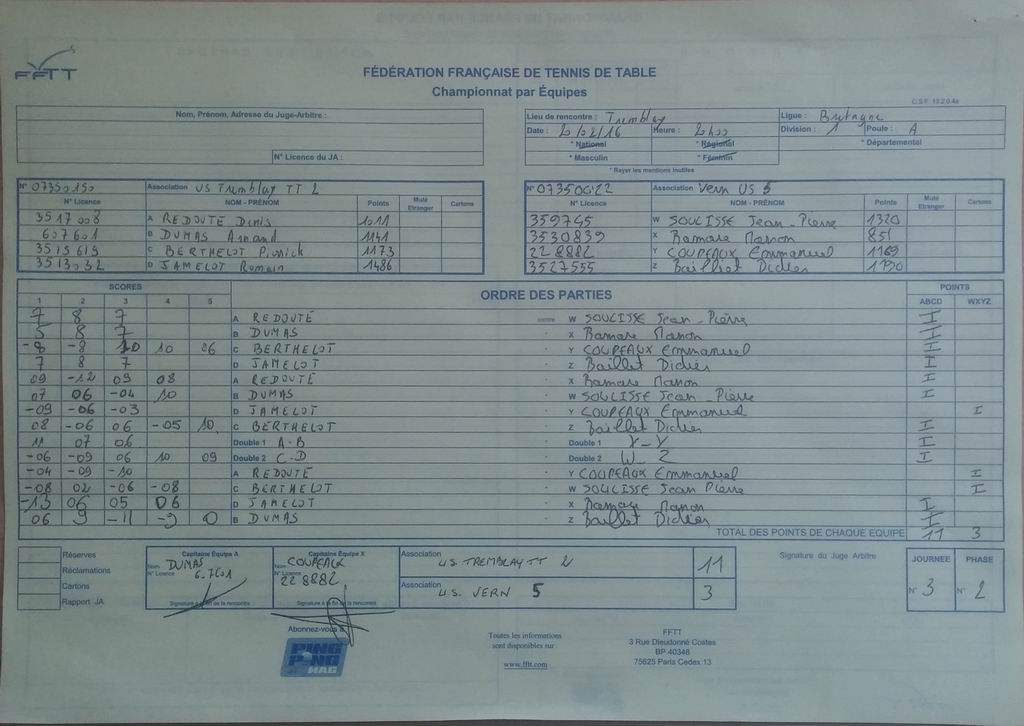 FFTT
FÉDÉRATION FRANÇAISE DE TENNIS DE TABLE
Championnat par Équipes
C.S.F. 13.2.0.4a
Nom, Prénom, Adresse du Juge-Arbitre :
N° Licence du JA :
Lieu de rencontre : Tremblay Ligue : Bretagne
Date : 20/02/16 Heure : 20h00 Division : 1 Poule : A
* National * Régional * Départemental
* Masculin * Féminin
* Rayer les mentions inutiles
N° 07350150 Association US Tremblay TT 2
N° Licence NOM - PRÉNOM Points Muté Etranger Cartons
3517008 A REDOUTÉ Denis 1011
607601 B DUMAS Armand 1141
3515615 C BERTHELOT Pierrick 1173
3513032 D JAMELOT Romain 1486
N° 07350622 Association Vern US 5
N° Licence NOM - PRÉNOM Points Muté Etranger Cartons
359745 W SOULISSE Jean-Pierre 1320
3530839 X Ramare Manon 851
228882 Y COUPEAUX Emmanuel 1169
3527555 Z Baillet Didier 1190
SCORES ORDRE DES PARTIES POINTS
1 2 3 4 5 ABCD WXYZ
7 8 7 A REDOUTÉ W SOULISSE Jean-Pierre I
5 8 7 B DUMAS X Ramare Manon I
-8 -8 10 10 06 C BERTHELOT Y COUPEAUX Emmanuel I
7 8 7 D JAMELOT Z Baillet Didier I
09 -12 09 08 A REDOUTÉ X Ramare Manon I
07 06 -04 10 B DUMAS W SOULISSE Jean-Pierre I
-09 -06 -03 D JAMELOT Y COUPEAUX Emmanuel I
08 -06 06 -05 10 C BERTHELOT Z Baillet Didier I
11 07 06 Double 1 A-B Double 1 X-Y I
-06 -09 06 10 09 Double 2 C-D Double 2 W-Z I
-04 -09 -10 A REDOUTÉ Y COUPEAUX Emmanuel I
-08 02 -06 -08 C BERTHELOT W SOULISSE Jean Pierre I
-13 06 05 06 D JAMELOT X Ramare Manon I
06 9 -11 -9 0 B DUMAS Z Baillet Didier I
TOTAL DES POINTS DE CHAQUE EQUIPE 11 3
Réserves
Réclamations
Cartons
Rapport JA
Capitaine Équipe A
Nom DUMAS
N° Licence 607601
Signature à la fin de la rencontre
Capitaine Équipe X
Nom COUPEAUX
N° Licence 228882
Signature à la fin de la rencontre
Association U.S. TREMBLAY TT 2 11
Association U.S. VERN 5 3
Signature du Juge Arbitre
JOURNEE PHASE
N° 3 N° 2
Abonnez-vous à
PING PONG MAG
Toutes les informations
sont disponibles sur
www.fftt.com
FFTT
3 Rue Dieudonné Costes
BP 40348
75625 Paris Cedex 13